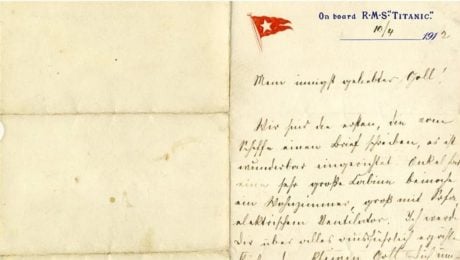 On board R·M·S·"TITANIC."
10/4 1912
Mein innigst geliebter Goll!
Wir sind die ersten, die vom
Schiffe einen Brief schreiben, es ist
wunderbar eingerichtet. Onkel hat
eine sehr große Cabine beinahe
ein Wohnzimmer, groß mit Sofa
elektrischem Ventilator. Ich werde
Dir über alles ausführlich